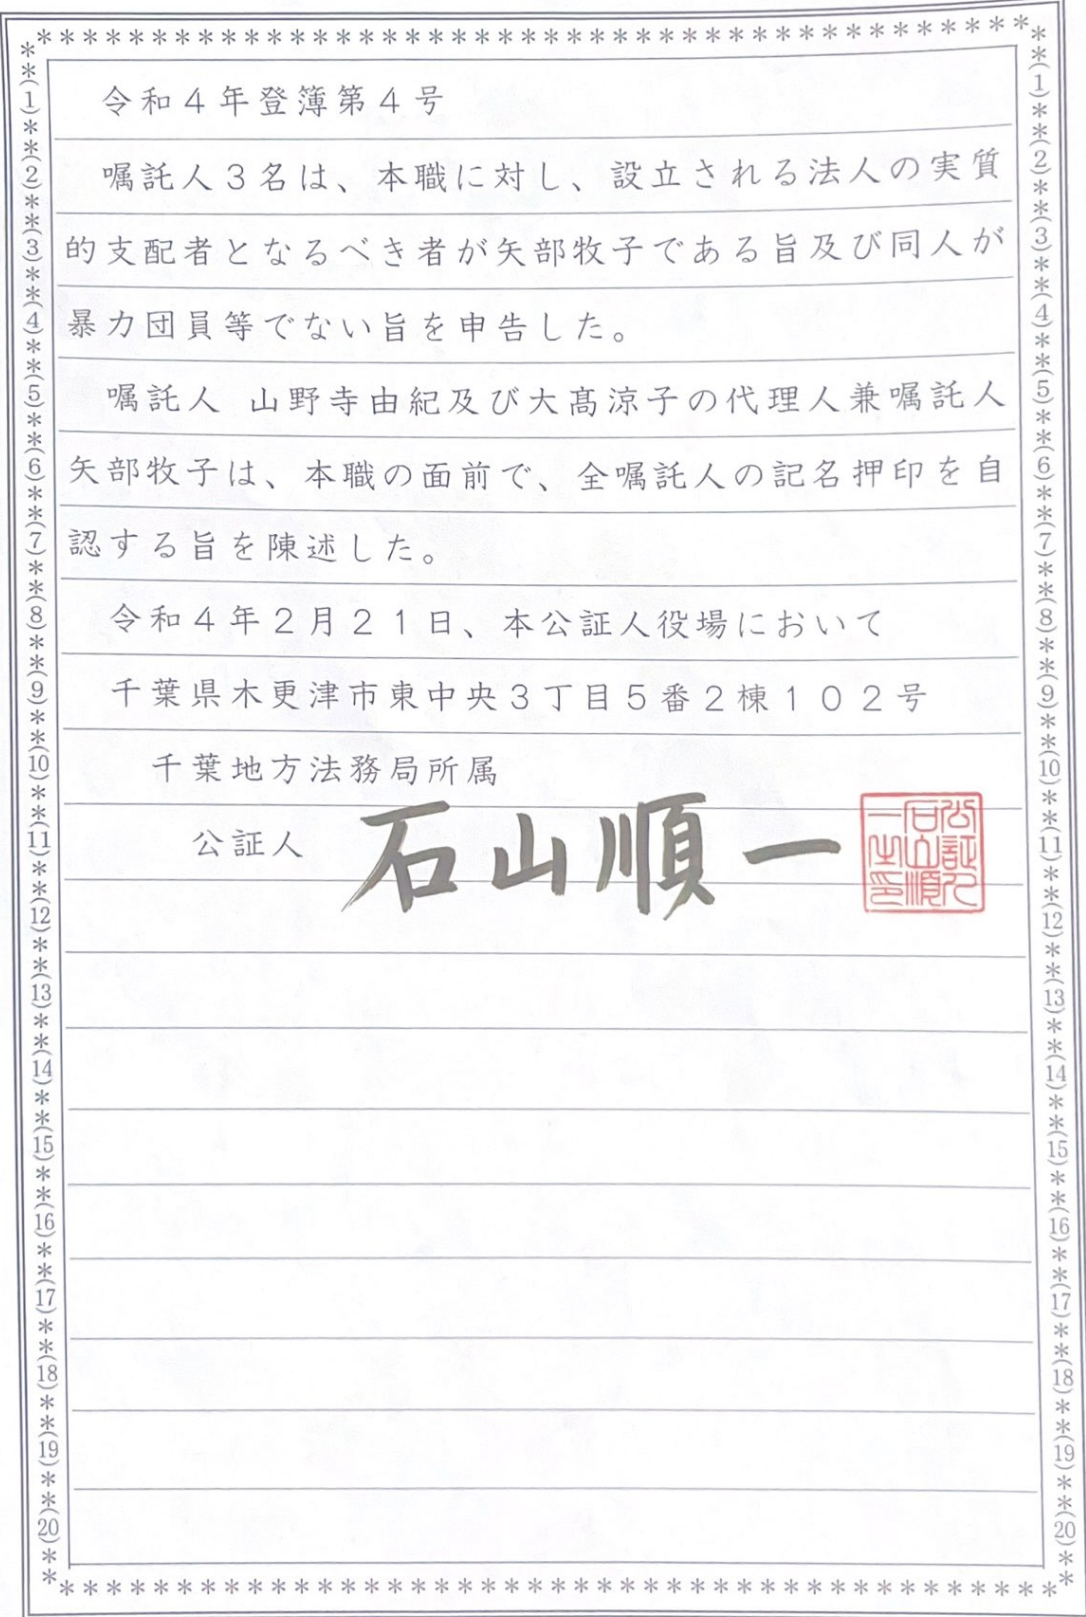 令和４年登簿第４号
嘱託人３名は、本職に対し、設立される法人の実質
的支配者となるべき者が矢部牧子である旨及び同人が
暴力団員等でない旨を申告した。
嘱託人 山野寺由紀及び大髙涼子の代理人兼嘱託人
矢部牧子は、本職の面前で、全嘱託人の記名押印を自
認する旨を陳述した。
令和４年２月２１日、本公証人役場において
千葉県木更津市東中央３丁目５番２棟１０２号
千葉地方法務局所属
公証人 石山順一
公証人
石山順
一之印